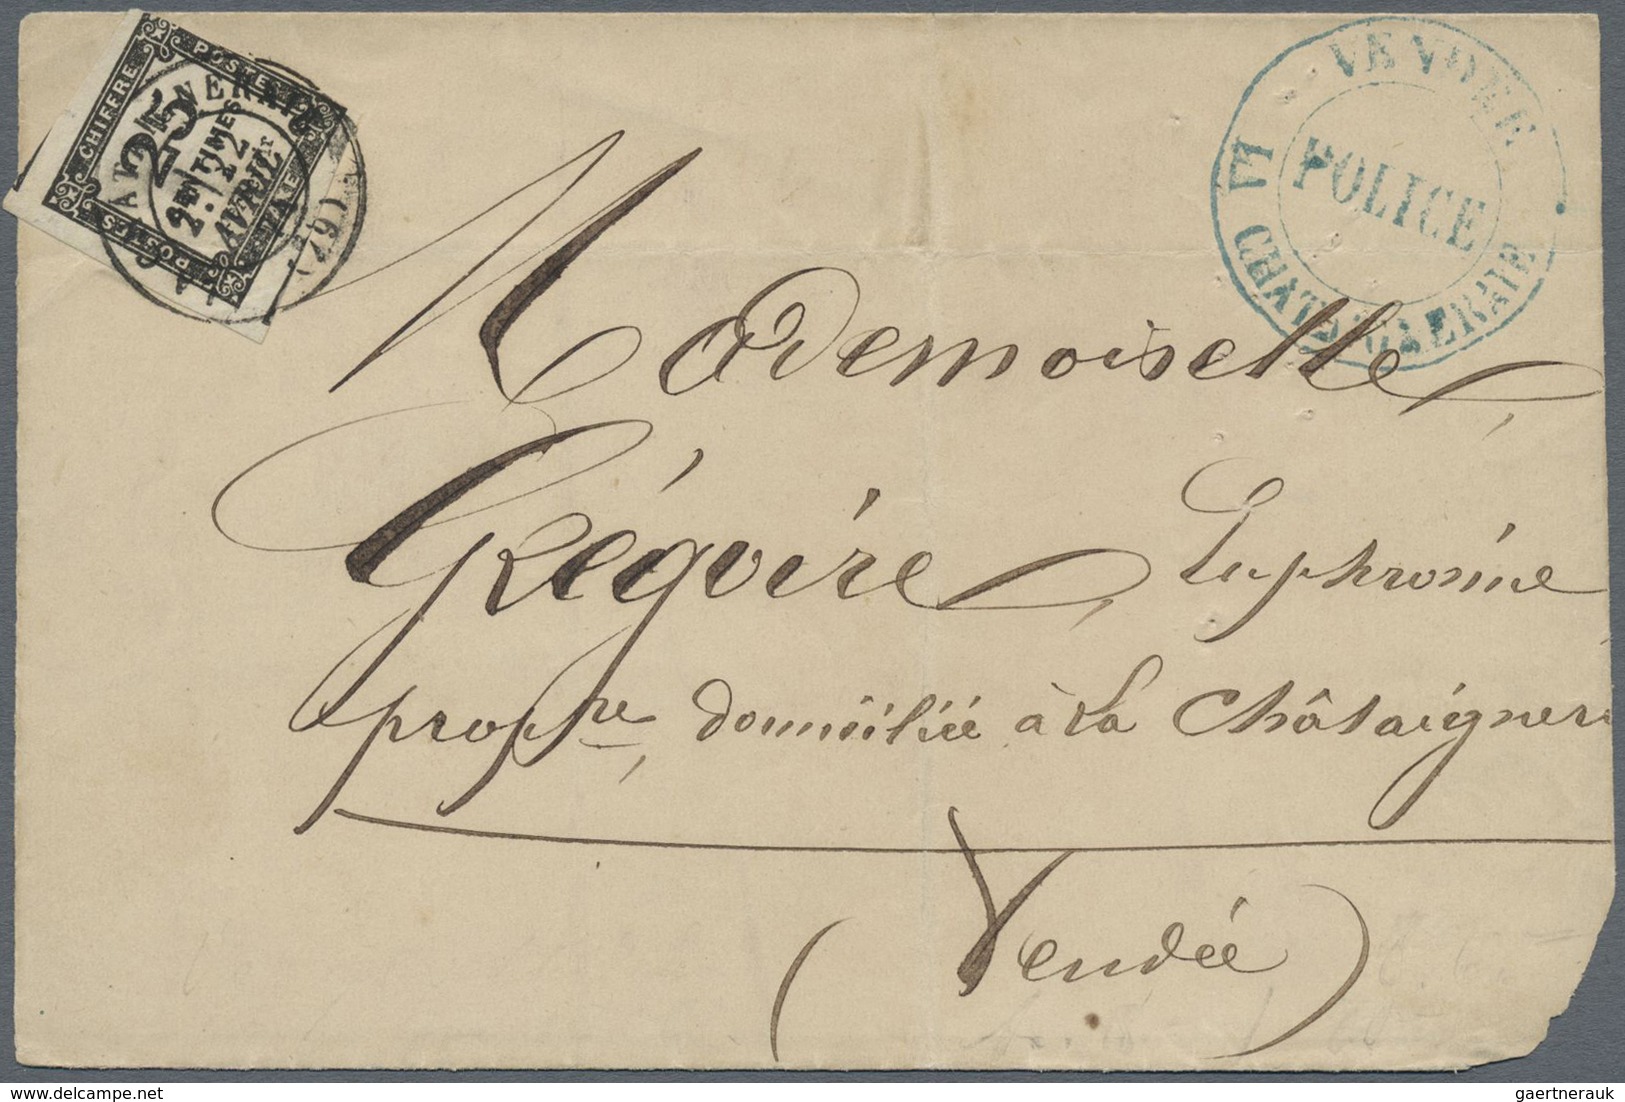 CHIFFRE
POSTE
25
CENTIMES
TAXE
POSTES
2E
12
AVRIL
(79)
VENDÉE
POLICE
LA CHATAIGNERAIE
Mademoiselle,
Grégoire, Euphrosine
propre, domiciliée à la Châtaigner
(Vendée)
gaertnerauk